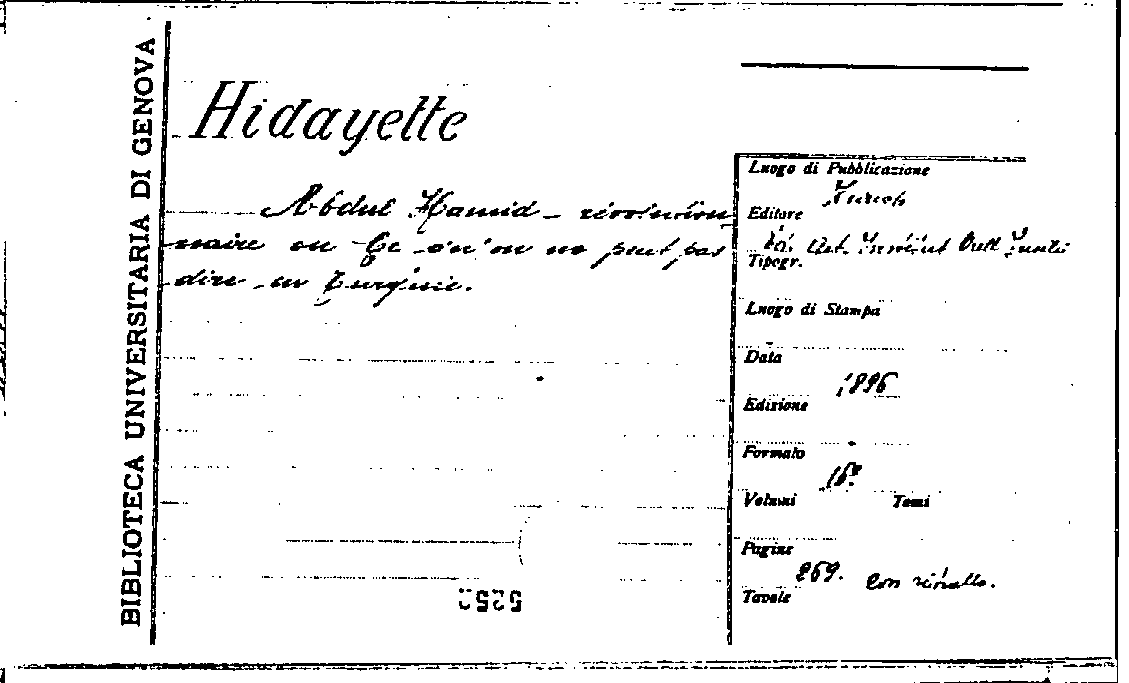 BIBLIOTECA UNIVERSITARIA DI GENOVA
Hidayette
Abdul Hamid - révolution
naire ou Ce qu'on ne peut pas
dire en Turquie.
Luogo di Pubblicazione
Zurich
Editore
Art. Institut Orell Fussli
Tipogr.
Luogo di Stampa
Data
1896
Edizione
Formato
16º
Volumi Tomi
Pagine
269. con ritratto.
Tavole